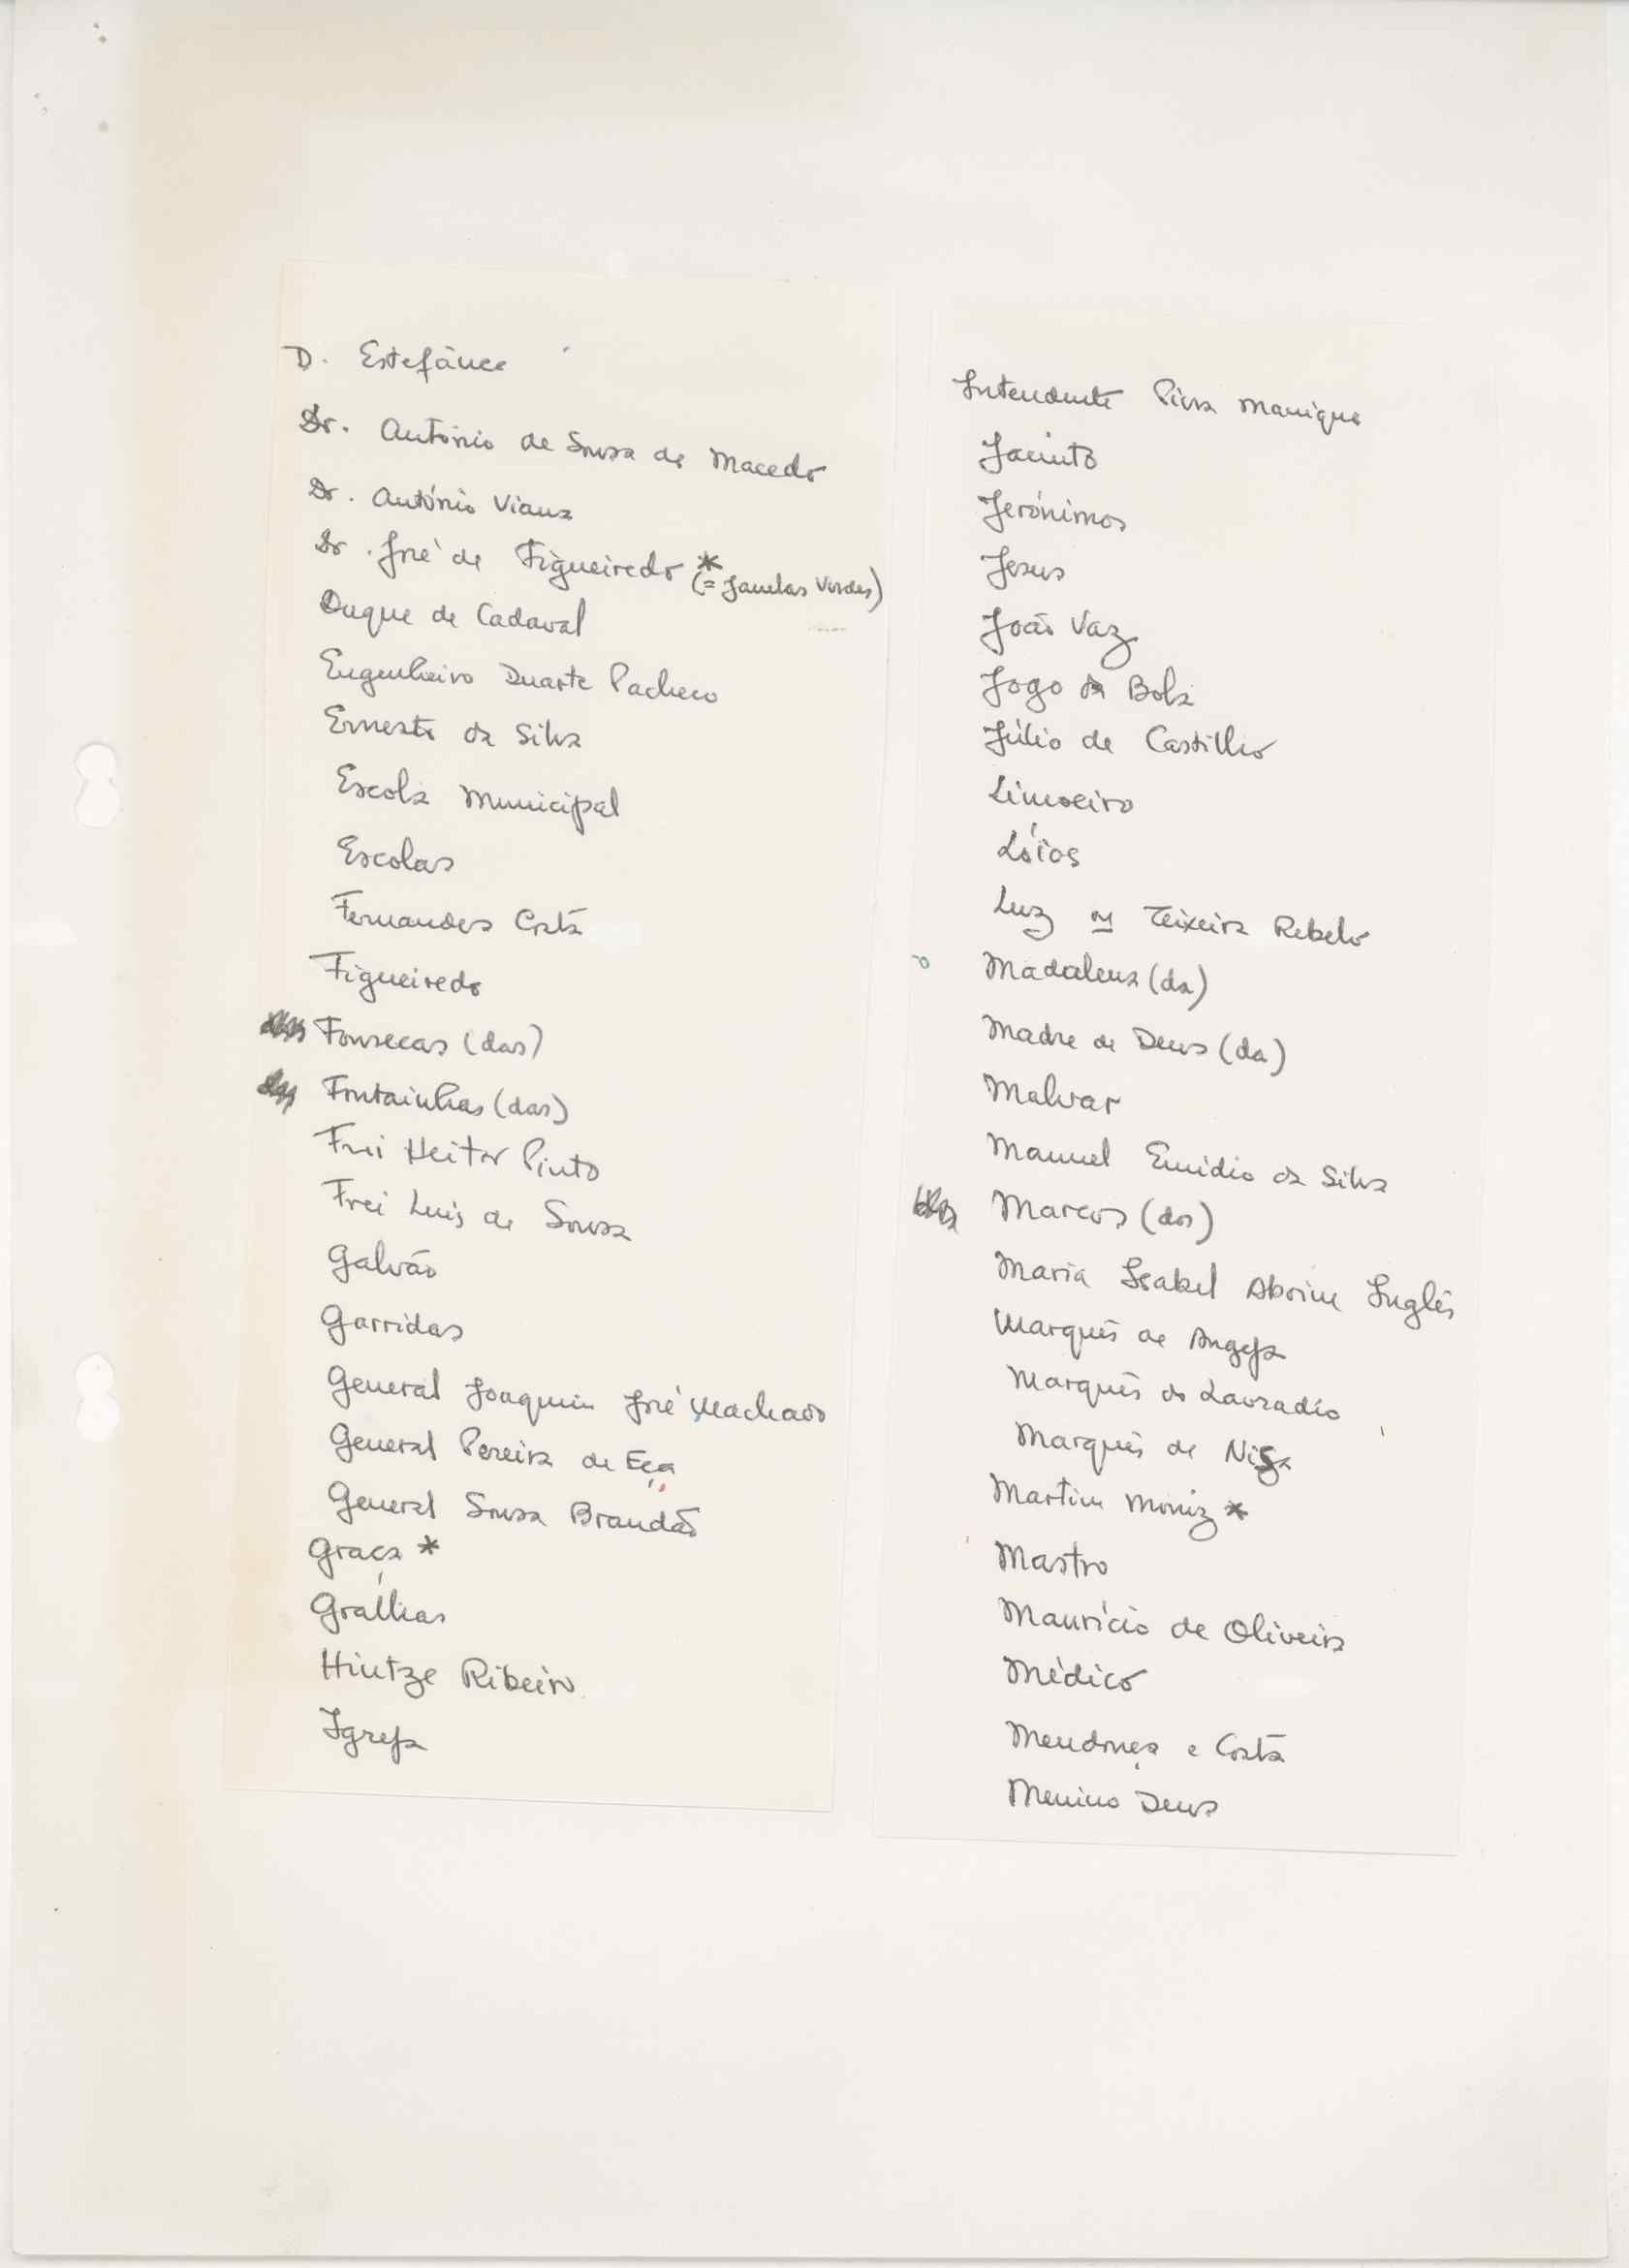 D. Estefânea
Dr. António de Sousa de Macedo
Dr. António Viana
Dr. José de Figueiredo * (= Janelas Verdes)
Duque de Cadaval
Engenheiro Duarte Pacheco
Ernesto da Silva
Escola Municipal
Escolas
Fernandes Costa
Figueiredo
Fonsecas (das)
Fontainhas (das)
Frei Heitor Pinto
Frei Luis de Sousa
Galvão
Garridas
General Joaquim José Machado
General Pereira de Eça
General Sousa Brandão
Graça *
Gralhas
Hintze Ribeiro
Igreja
Intendente Pina Manique
Jacinto
Jerónimos
Jesus
João Vaz
Jogo da Bola
Júlio de Castilho
Limoeiro
Lóios
Luz ou Teixeira Rebelo
Madalena (da)
Madre de Deus (da)
Malvar
Manuel Emidio da Silva
Marcos (dos)
Maria Isabel Aboim Inglês
Marquês de Angeja
Marquês do Lavradio
Marquês de Niza
Martim Moniz *
Mastro
Maurício de Oliveira
Médico
Mendonça e Costa
Menino Deus